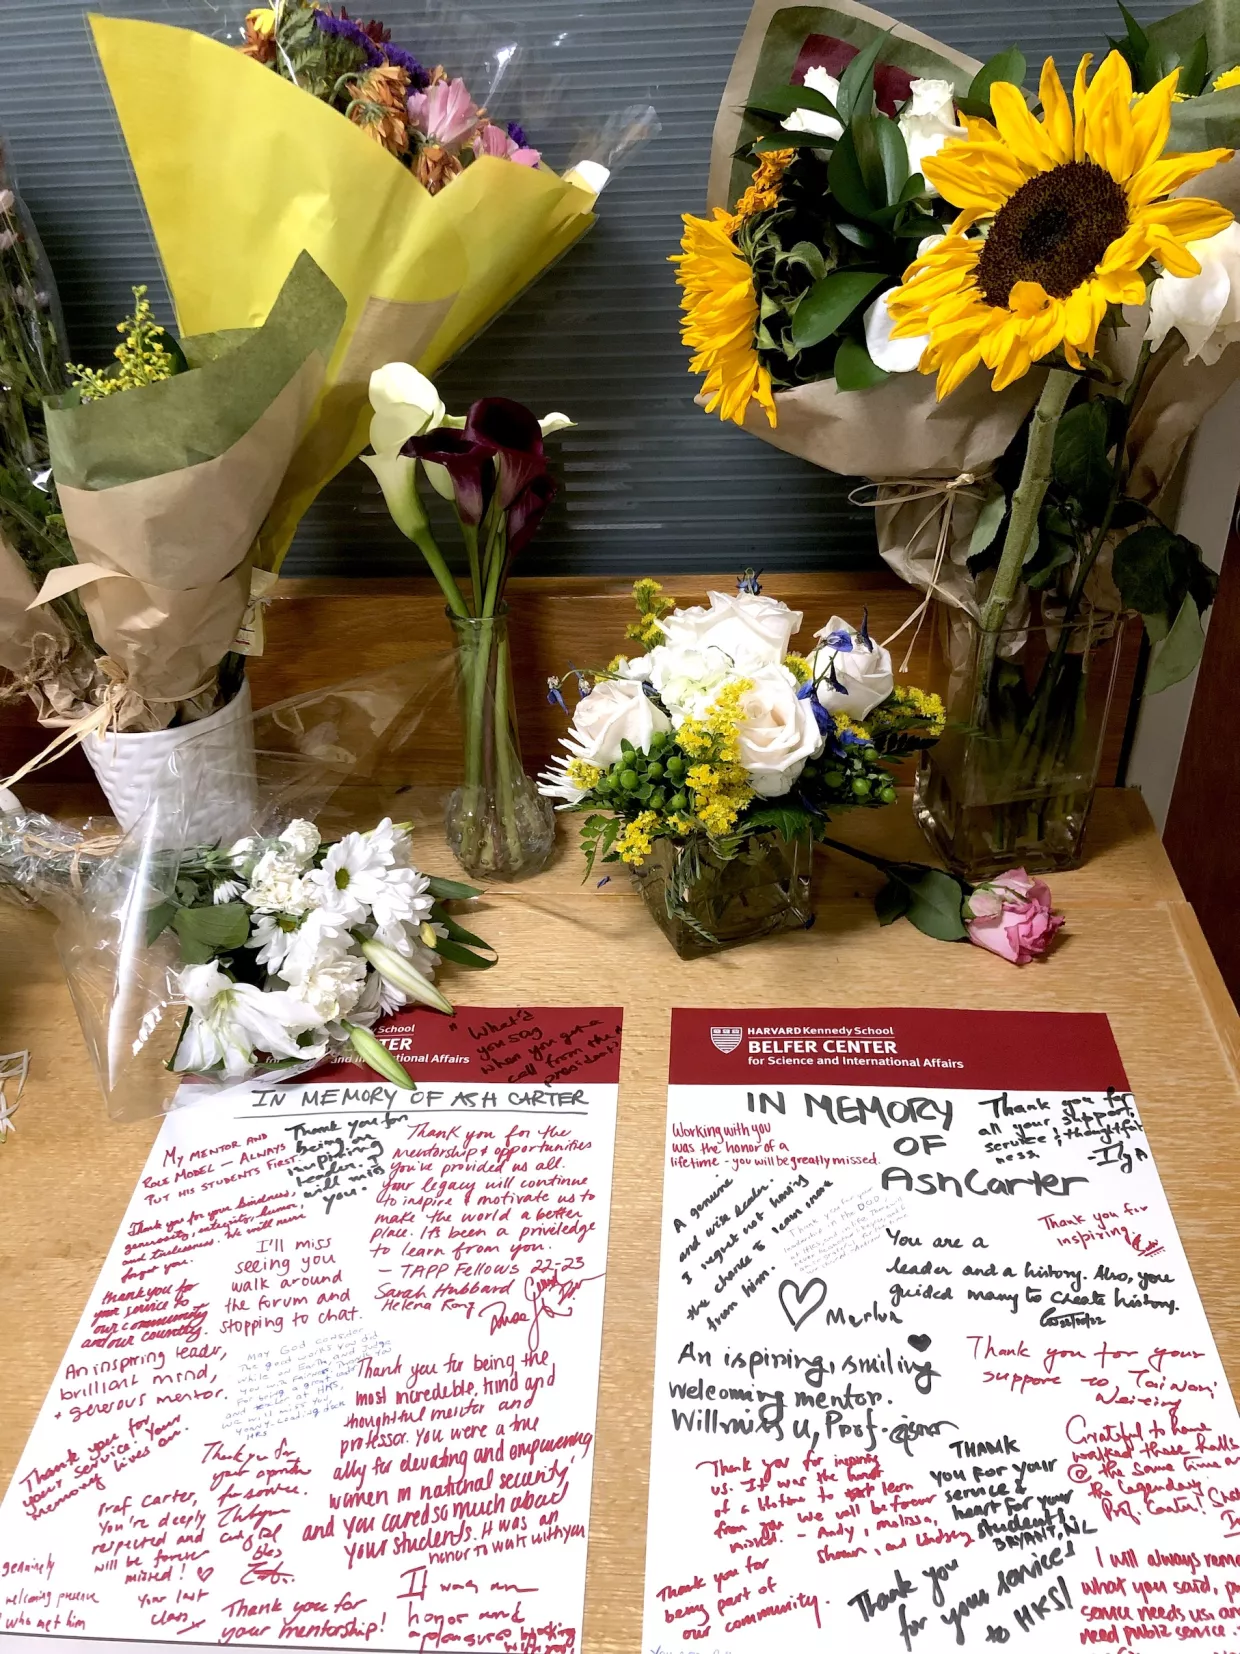 School
TER
and International Affairs
"What'd
you say
when you got a
call from the
president?"
IN MEMORY OF ASH CARTER
MY MENTOR AND
ROLE MODEL — ALWAYS
PUT HIS STUDENTS FIRST.
Thank you for
being an
inspiring
leader. I
will miss
you.
Thank you for the
mentorship & opportunities
you've provided us all.
your legacy will continue
to inspire & motivate us to
make the world a better
place. It's been a priviledge
to learn from you.
— TAPP Fellows 22-23
Sarah Hubbard
Helena Rong
Thank you for your kindness,
generosity, integrity, humor,
and
We will never
forget you.
I'll miss
seeing you
walk around
the forum and
stopping to chat.
thank you for
your service to
our community
and our country.
An inspiring leader,
brilliant mind,
+ generous mentor.
May God consider
the good works you did
while on Earth, and judge
you
For being a great
and
at HKS,
we will miss you
HKS
Thank you for being the
most incredible, kind and
thoughtful mentor and
professor. You were a true
ally for elevating and empowering
women in national security,
and you cared so much about
your students. It was an
honor to work with you
Thank you for
your service. Your
memory lives on.
Thank you for
your
service.
Prof Carter,
You're deeply
respected and
will be forever
missed!
Your last
class
genuinely
welcoming presence
who met him
Thank you for
your mentorship!
It was an
honor and
a pleasure
HARVARD Kennedy School
BELFER CENTER
for Science and International Affairs
IN MEMORY
OF
Ash Carter
Working with you
was the honor of a
lifetime - you will be greatly missed.
Thank you for
all your support,
service & thoughtful
ness
A genuine
and wise leader.
I regret not having
the chance to learn more
from him.
Thank you for your
leadership in the DOD,
Thank you for
inspiring
You are a
leader and a history. Also, you
guided many to create history.
Merlva
An ispiring, smiling
welcoming mentor.
Will miss u, Prof.
Thank you for your
support to Taiwan!
Thank you for inspiring
us. It was the honor
of a lifetime to learn
from you. We will be forever
missed. - Andy, Melissa,
Shawn, and Lindsay
THANK
YOU FOR YOUR
service &
heart for your
students!
BRYANT, NL
Grateful to have
walked these halls
@ the same time as
the legendary
Prof. Carter!
Thank you for
being part of
our community.
Thank you
for your services
to HKS!
I will always reme
what you said, pu
service needs us, an
need public service.